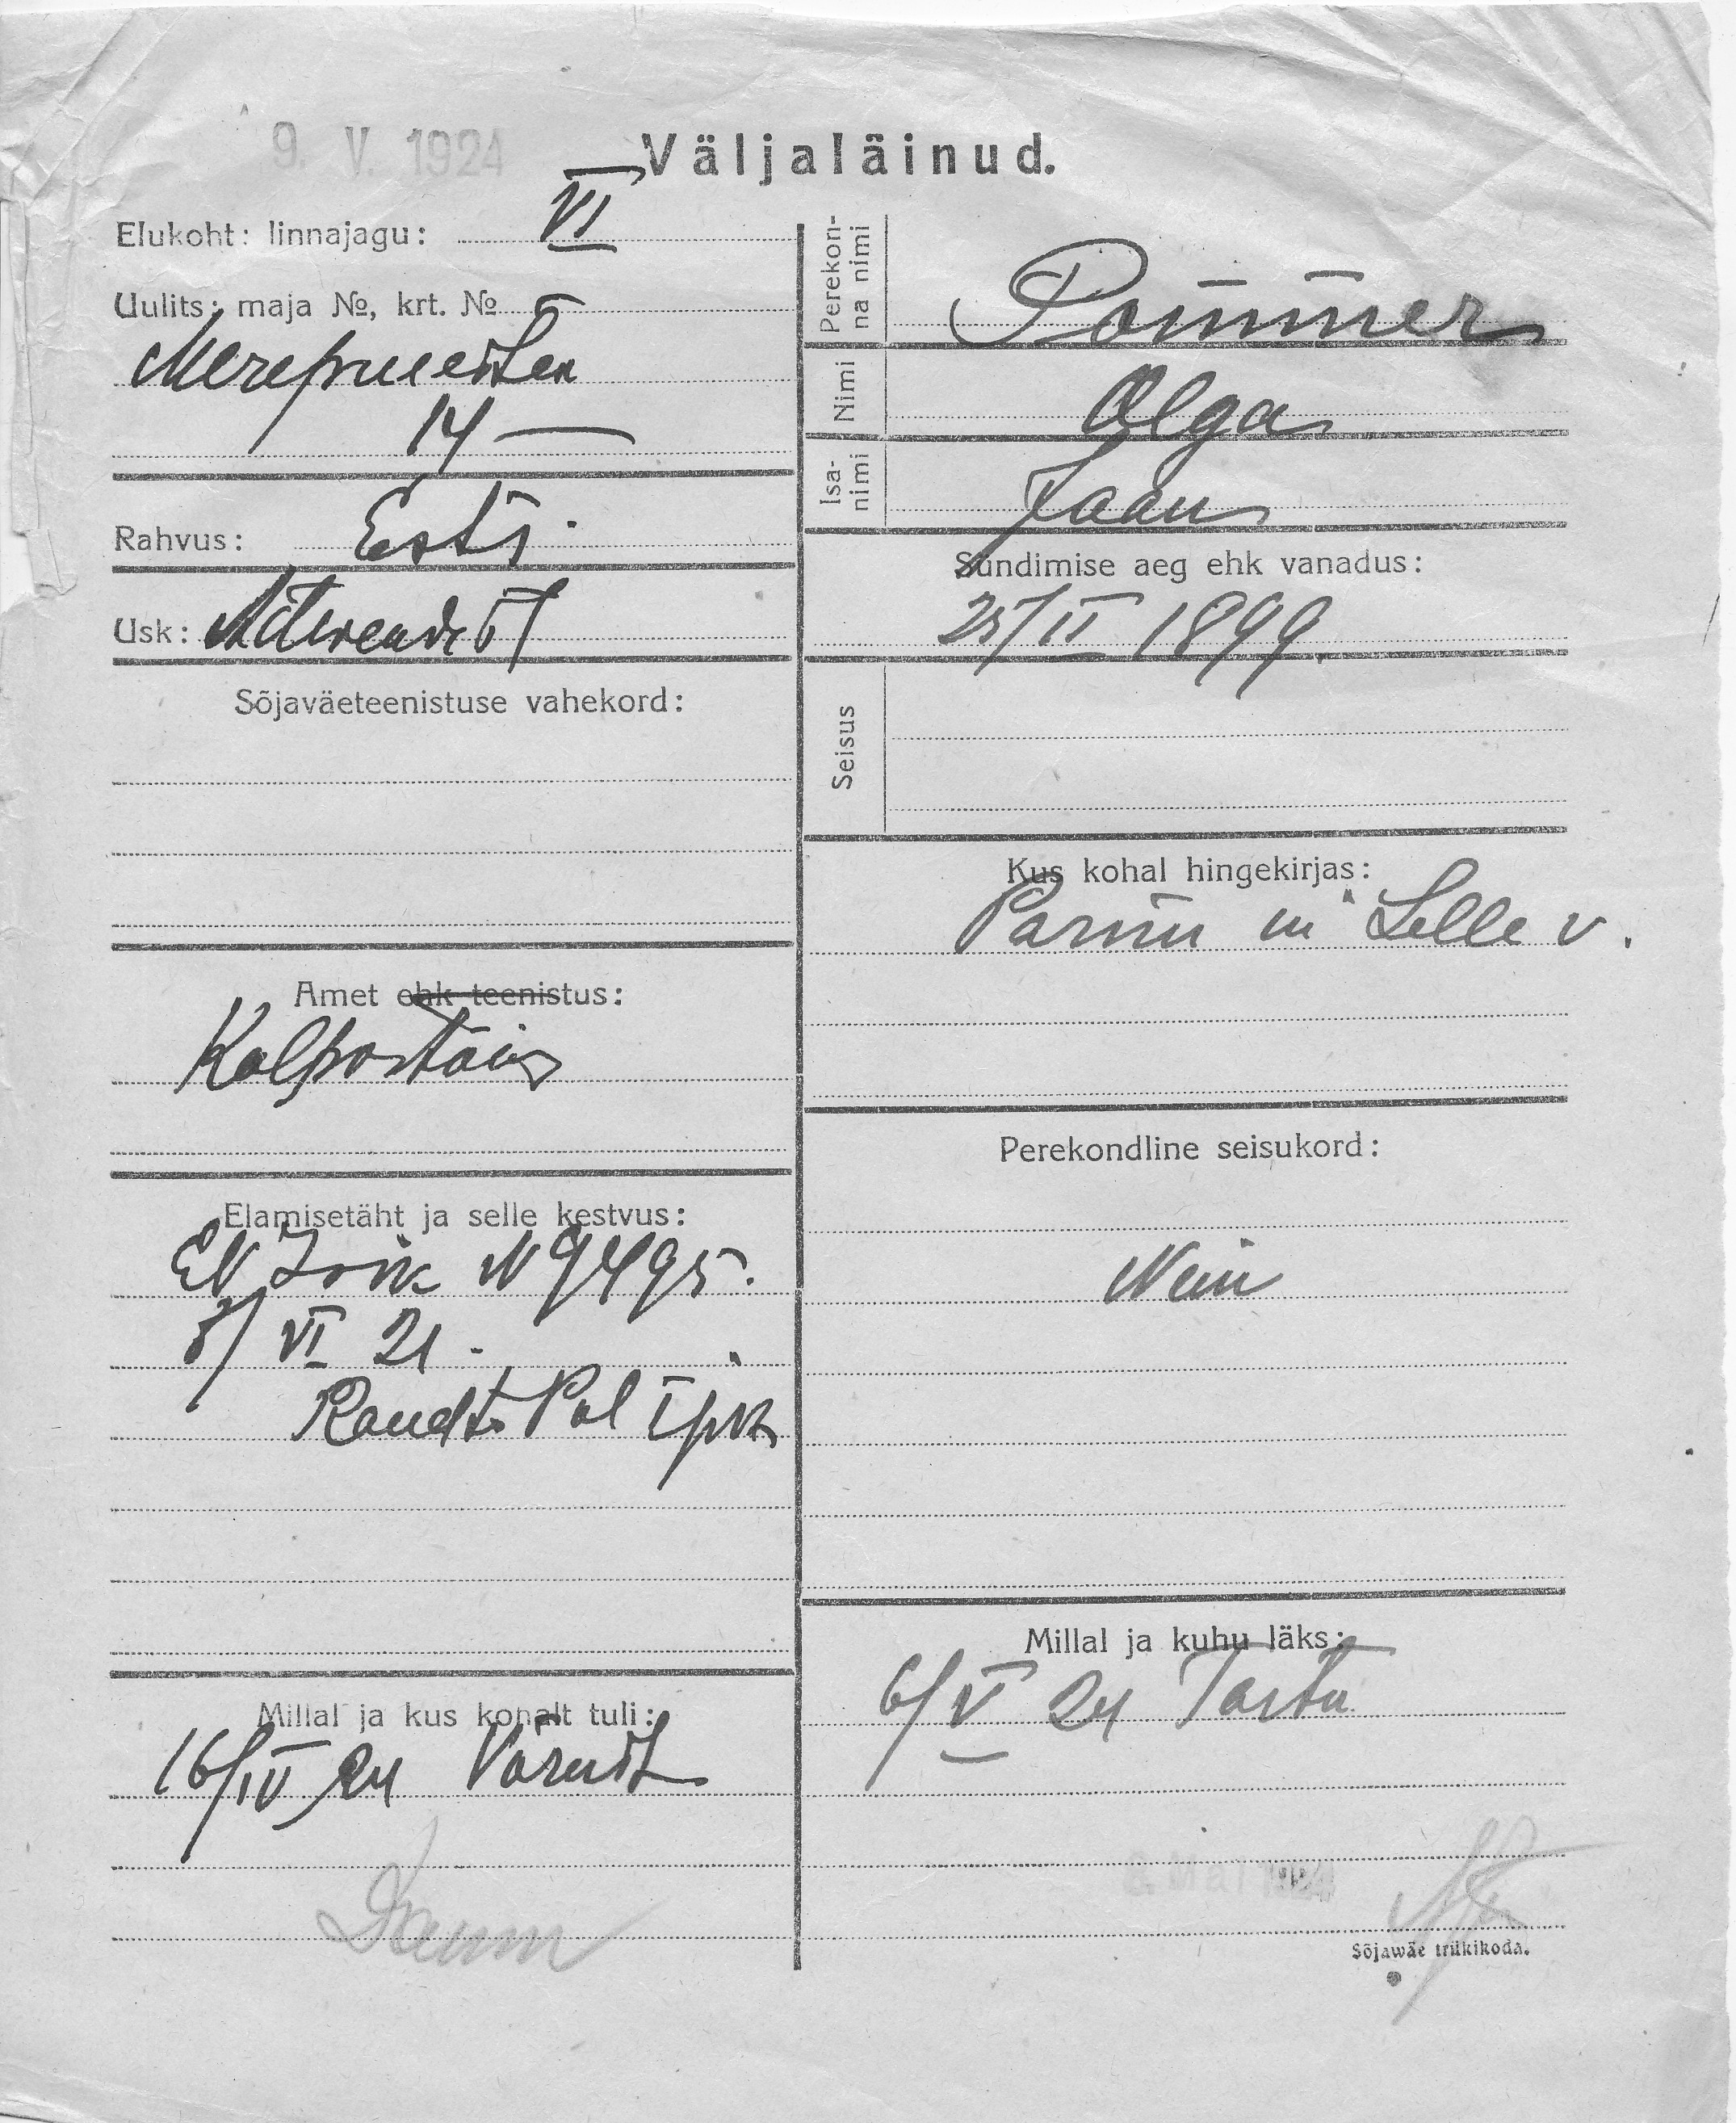 9. V. 1924
Väljaläinud.
Elukoht: linnajagu: VI
Uulits: maja №, krt. №
Merepuiestee
14 —
Rahvus: Esti
Usk: Adventist
Sõjaväeteenistuse vahekord:
Amet ehk teenistus:
Kolportöör
Elamisetäht ja selle kestvus:
N 9495.
8/VI 21.
Raudt. Pol I jsk
Millal ja kus kohalt tuli:
16/IV 24 Võrust
Perekonna nimi
Pommer
Nimi
Olga
Isanimi
Jaan
Sündimise aeg ehk vanadus:
25/II 1899.
Seisus
Kus kohal hingekirjas:
Pärnu m Lelle v.
Perekondline seisukord:
Neiu
Millal ja kuhu läks:
6/V 24 Tartu
8. Mai 1924
Sõjawäe trükikoda.